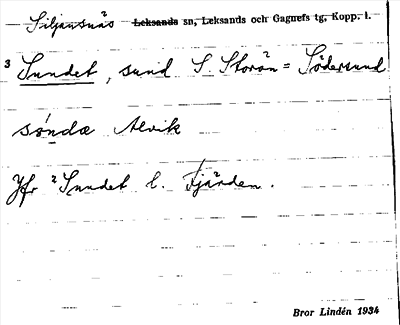 Siljansnäs Leksands sn, Leksands och Gagnefs tg, Kopp. l.
3 Sundet, sund S Storön = Södersund
sǿndæ Alvik
Jfr 2 Sundet l. Fjärden.
Bror Lindén 1934